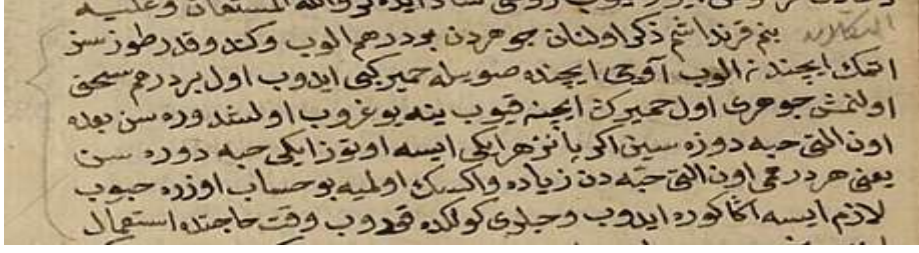 والله المستعان وعليه
التكلان بنم قرنداشم ذكر اولنان جوهردن بر درهم الوب وكندو قدر طوزسز
اتمك ايچندن الوب آووجى ايچنده صويله خمير كبى ايدوب اول بر درهم سحق
اولنمش جوهرى اول خميرك ايچنه قيوب ينه يوغروب اولشدوره سن بعده
اون التى حبه دوزه سين اكر ايكى ايسه اوتوز ايكى حبه دوزه سن
يعنى هر درهمى اون التى حبه دن زياده واكسك اولميه بو حساب اوزره حبوب
لازم ايسه اكا كوره ايدوب وجلدى كولكده قوروب وقت حاجتده استعمال